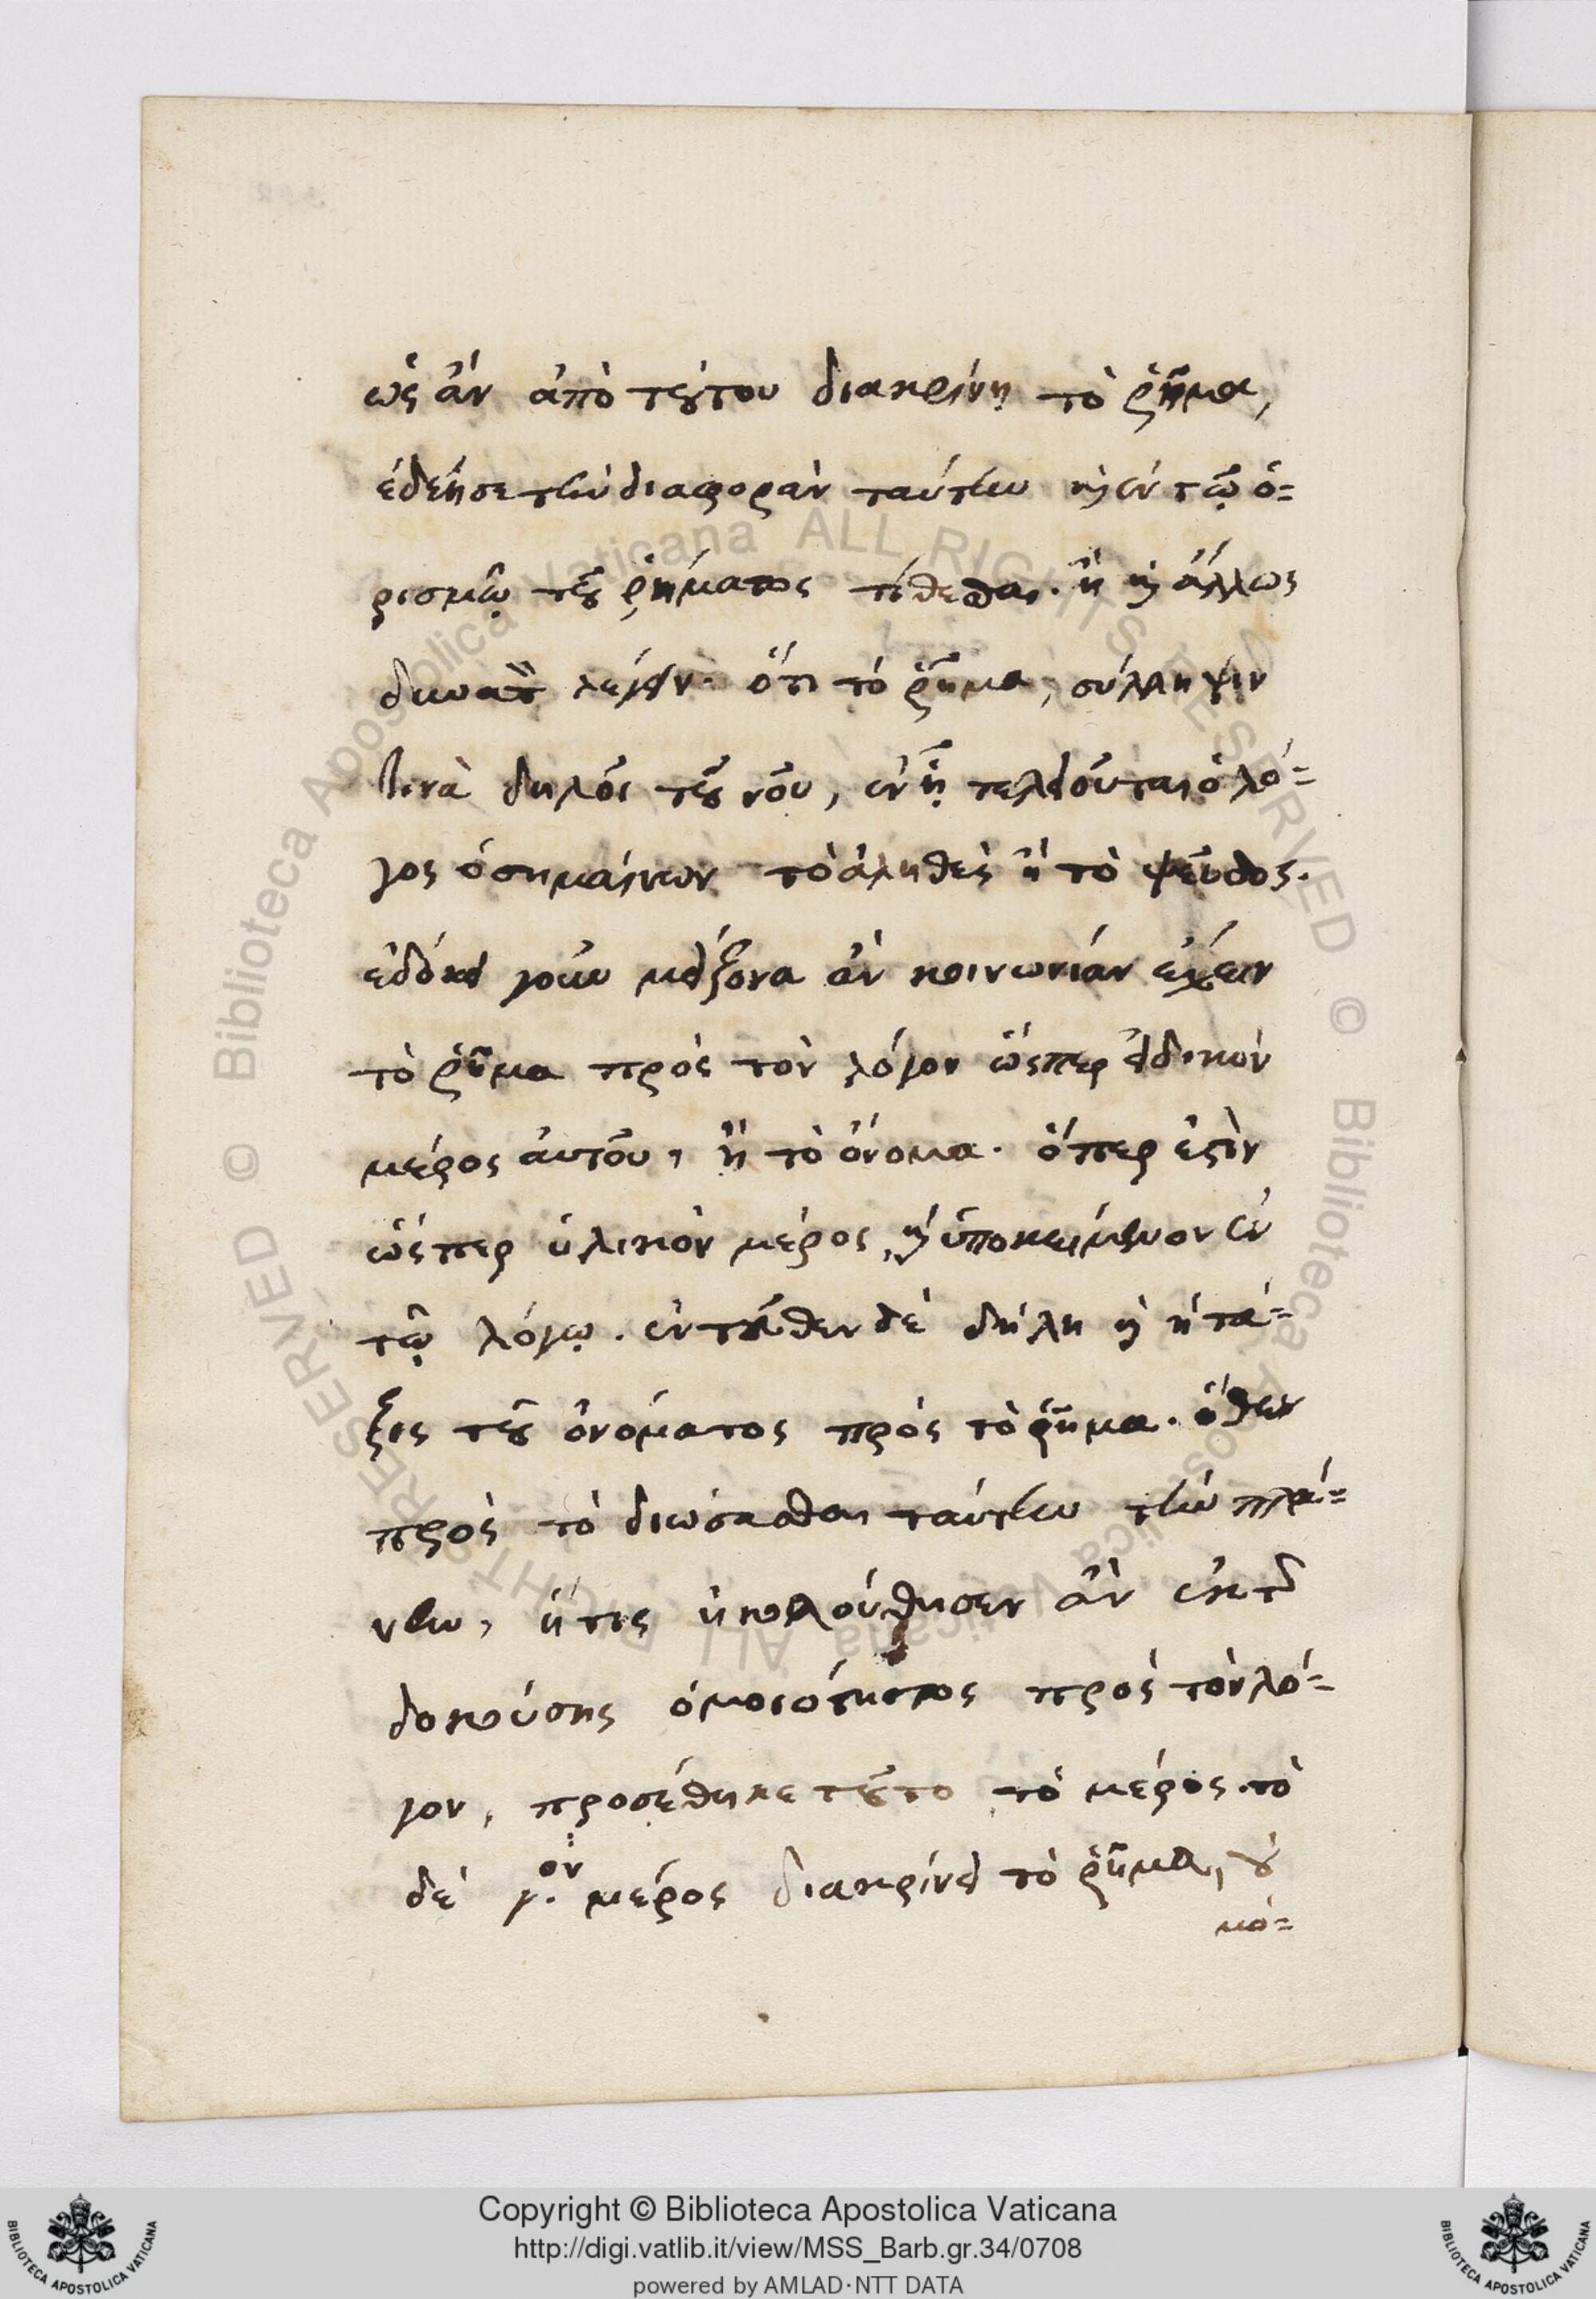 ὡς ἂν ἀπὸ τούτου διακρίνῃ τὸ ῥῆμα,
ἐδέησε τὴν διαφορὰν ταύτην καὶ ἐν τῷ ὁ=
ρισμῷ τοῦ ῥήματος τίθεσθαι. ἢ καὶ ἄλλως
δυνατὸν λέγειν. ὅτι τὸ ῥῆμα, σύλληψιν
τινὰ δηλοῖ τοῦ νοῦ, ἐν ᾗ τελειοῦται ὁ λό=
γος ὁ σημαίνων τὸ ἀληθὲς ἢ τὸ ψεῦδος.
ἐδόκει γοῦν μείζονα ἂν κοινωνίαν ἔχειν
τὸ ῥῆμα πρὸς τὸν λόγον ὥσπερ εἰδικὸν
μέρος αὐτοῦ, ἢ τὸ ὄνομα. ὅπερ ἐστὶν
ὥσπερ ὑλικὸν μέρος, καὶ ὑποκείμενον ἐν
τῷ λόγῳ. ἐντεῦθεν δὲ δήλη καὶ ἡ τά=
ξις τοῦ ὀνόματος πρὸς τὸ ῥῆμα. ὅθεν
πρὸς τὸ διώσασθαι ταύτην τὴν πλά=
νην, ἥτις ἠκολούθησεν ἂν ἐκ τῆς
δοκούσης ὁμοιότητος πρὸς τὸν λό=
γον, προσέθηκε τοῦτο τὸ μέρος. τὸ
δὲ γ.ον μέρος διακρίνει τὸ ῥῆμα, οὐ
μό=
Copyright © Biblioteca Apostolica Vaticana
http://digi.vatlib.it/view/MSS_Barb.gr.34/0708
powered by AMLAD·NTT DATA
BIBLIOTECA APOSTOLICA VATICANA
BIBLIOTECA APOSTOLICA VATICANA
© Biblioteca Apostolica Vaticana ALL RIGHTS RESERVED
© Biblioteca Apostolica Vaticana ALL RIGHTS RESERVED